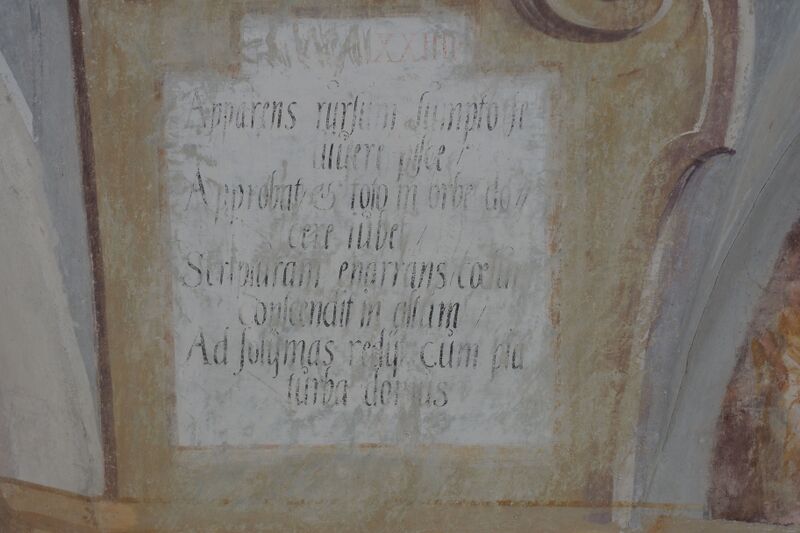 LXXIIII
Apparens rursum sumpto se
vivere pisce /
Approbat, & toto in orbe do //
cere iubet /
Scripturam enarrans, coelum
Conscendit in altum /
Ad solymas redijt cum pia
turba domus